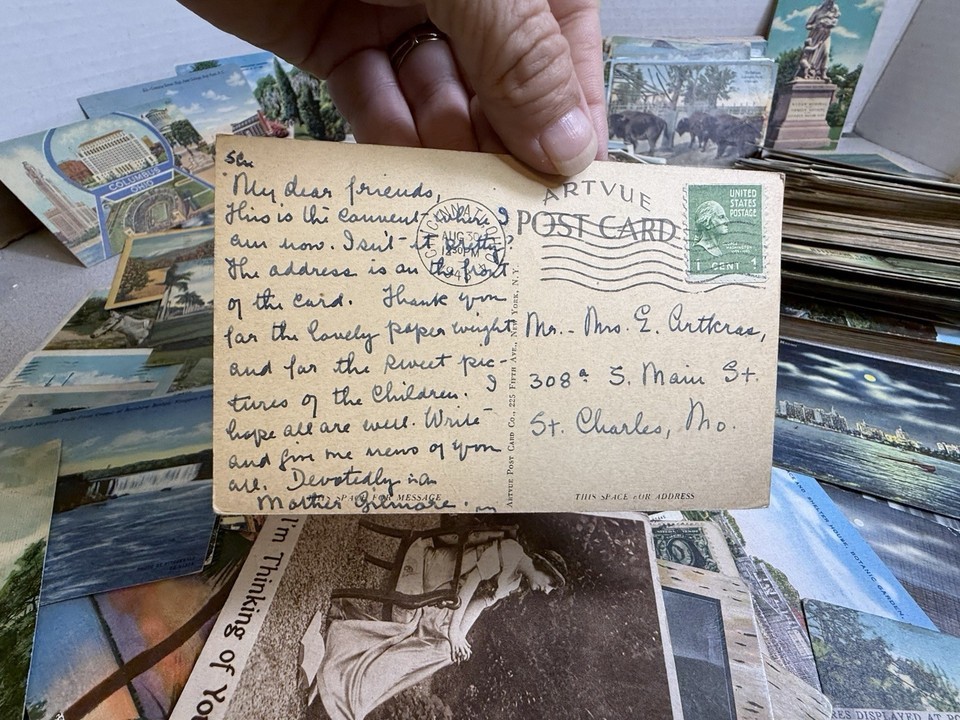 My dear friends,
This is the convent where I
am now. Isn't it pretty?
The address is on the front
of the card. Thank you
for the lovely paper weight
and for the sweet pic-
tures of the Children. I
hope all are well. Write
and give me news of you
all. Devotedly in
Mother Gilmore.
THIS SPACE FOR MESSAGE
CINCINNATI, OHIO
AUG 30
PM
ARTVUE
POST CARD
UNITED
STATES
POSTAGE
1 CENT 1
Artvue Post Card Co., 225 Fifth Ave., New York, N.Y.
Mr. - Mrs. E. Artkras,
308a S. Main St.
St. Charles, Mo.
THIS SPACE FOR ADDRESS
COLUMBUS
OHIO
I'm Thinking of You
SHELTER HOUSE, BOTANIC GARDEN,
DISPLAYED AT